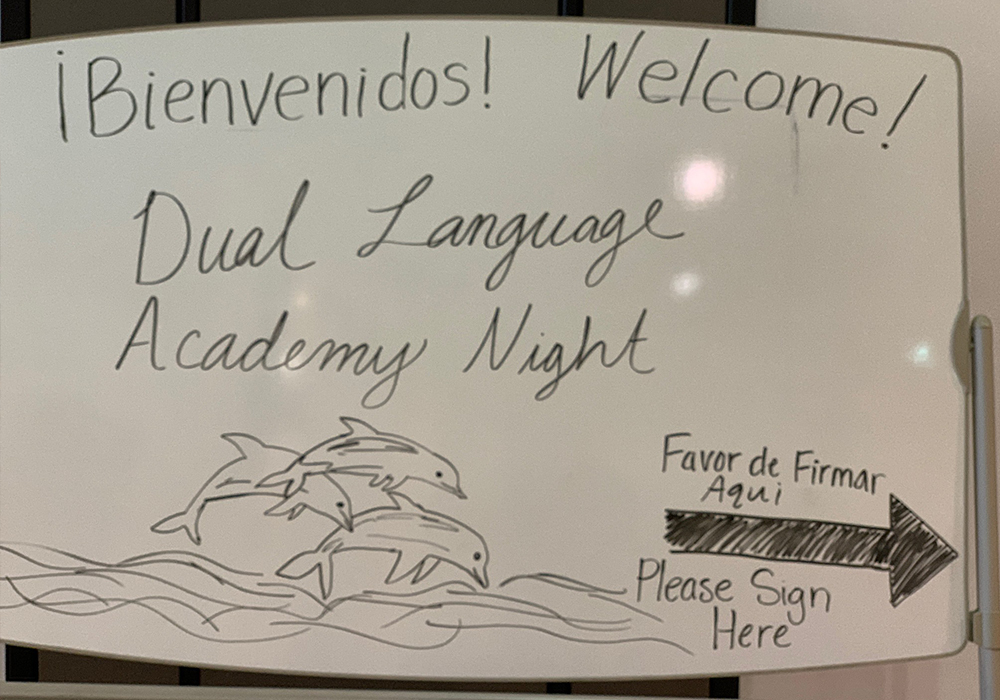 ¡Bienvenidos! Welcome!
Dual Language
Academy Night
Favor de Firmar
Aqui
Please Sign
Here